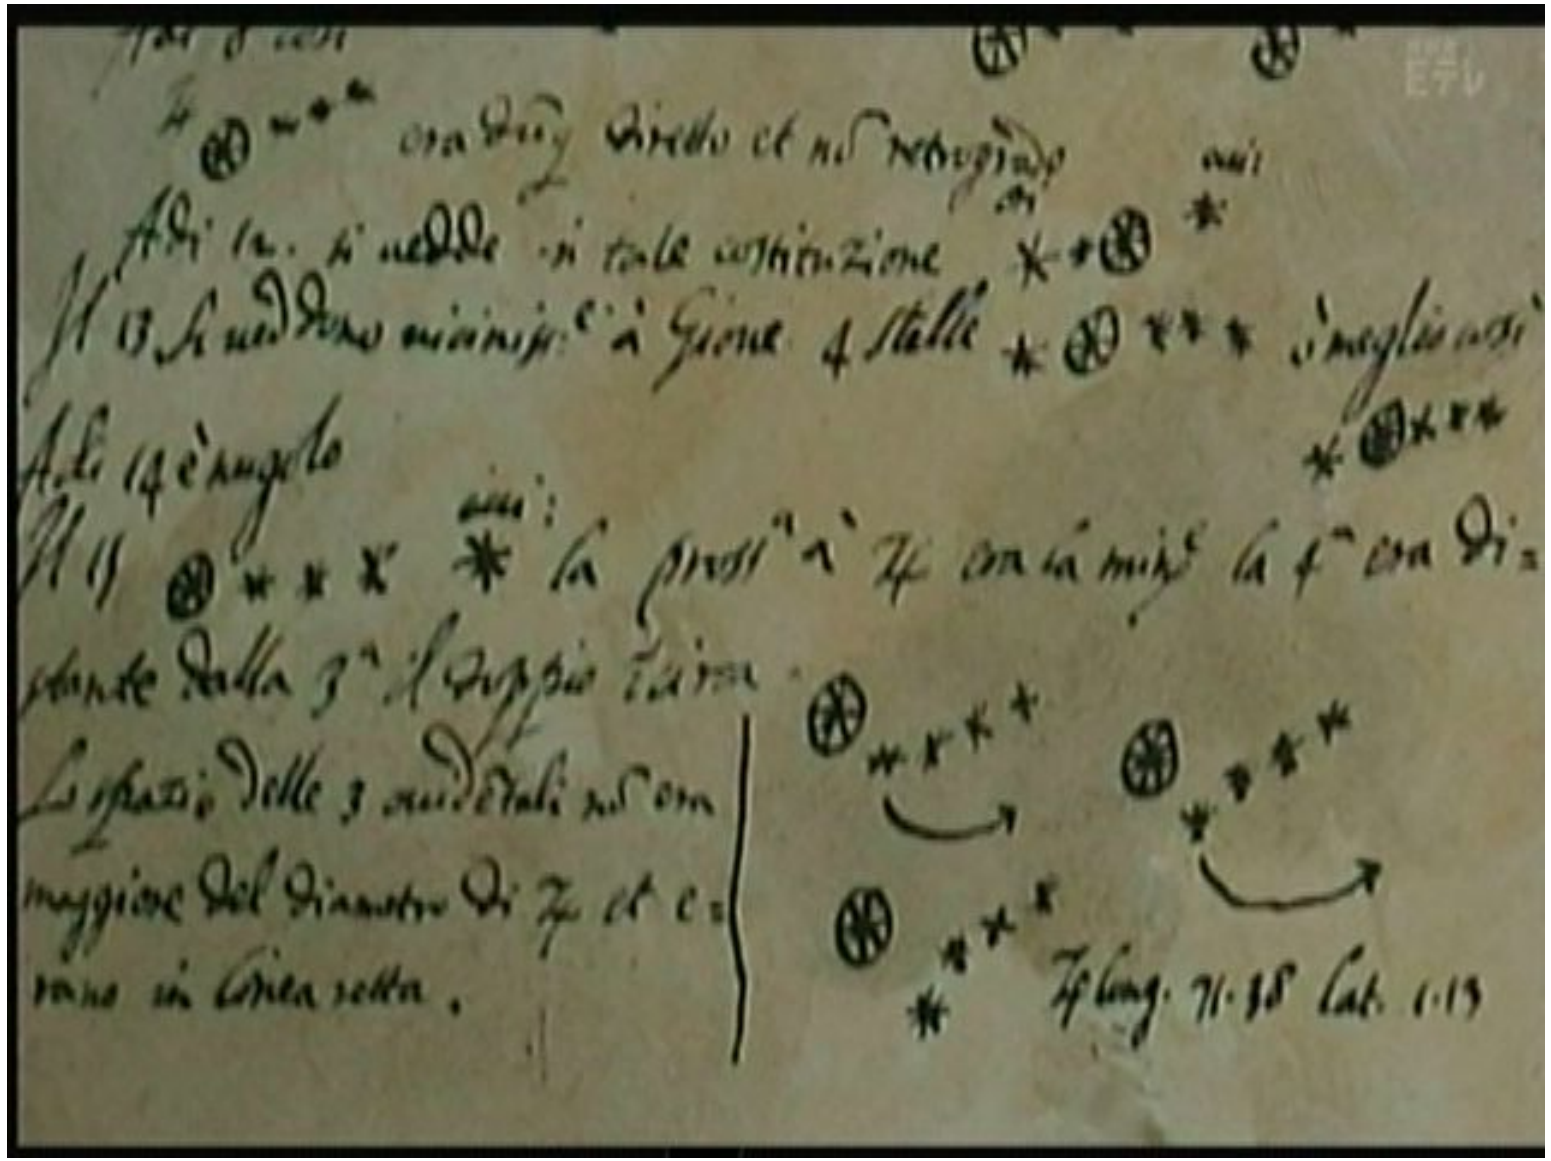 Adi 8 così
NHK
Eテレ
♃ era dūq̃ diretto et nō retrogrado
Adi 12. si vedde in tale costituzione
Il 13 si veddono vicinissᵉ à Giove 4 stelle ò meglio così
Adi 14 è nugolo
Il 15 la prossᵃ à ♃ era la minᵉ la 4ᵃ era di=
stante dalla 3ᵃ il doppio īcirca
Lo spazio delle 3 occidētali nō era
maggiore del diametro di ♃ et e=
rano in linea retta.
♃ long. 71.38 lat. 1.13